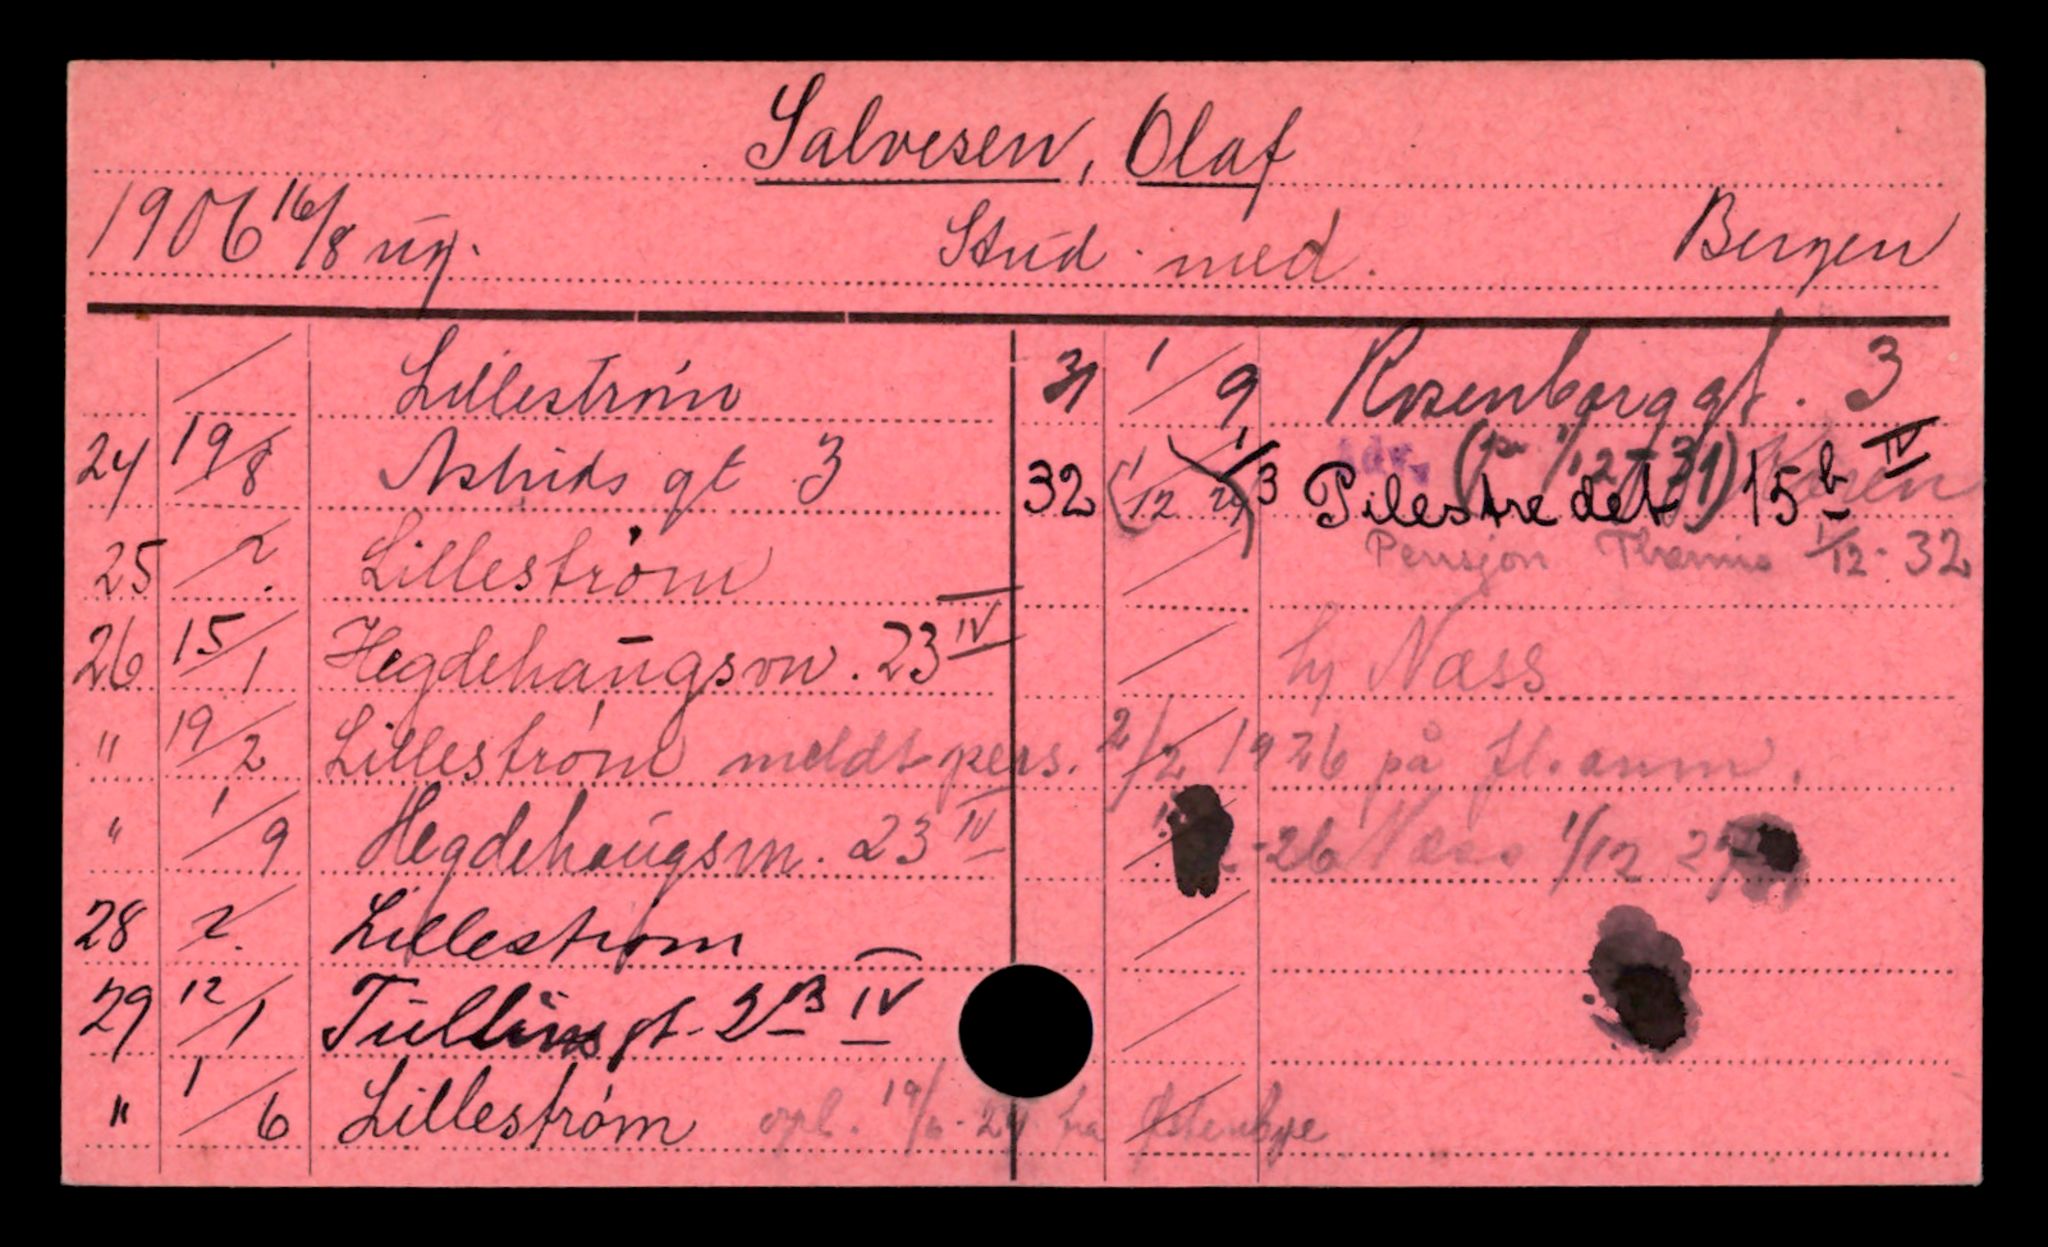 Salvesen, Olaf
1906 16/8 ug. Stud. med. Bergen
/ Lillestrøm
24 19/8 Astrids gt 3
25 /2. Lillestrøm
26 15/1 Hegdehaugsvn. 23 IV
" 19/2 Lillestrøm meldt pers. 2/2 1926 på fl. anm.
" 1/9 Hegdehaugsvn. 23 IV
28 /2. Lillestrøm
29 12/1 Tullins gt. 2 B IV
" 1/6 Lillestrøm opl. 19/6-29 fra Østenbye
31 1/9 Rosenborggt. 3
adr. (pr 1/12-31)
32 (1/12) 1/3 Pilestredet 15 b IV
Pensjon 1/12-32
hj Næss
-26 Næss 1/12 27